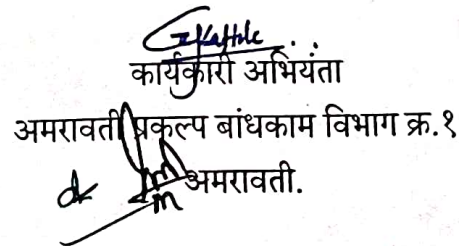 कार्यकारी अभियंता
अमरावती प्रकल्प बांधकाम विभाग क्र.१
अमरावती.